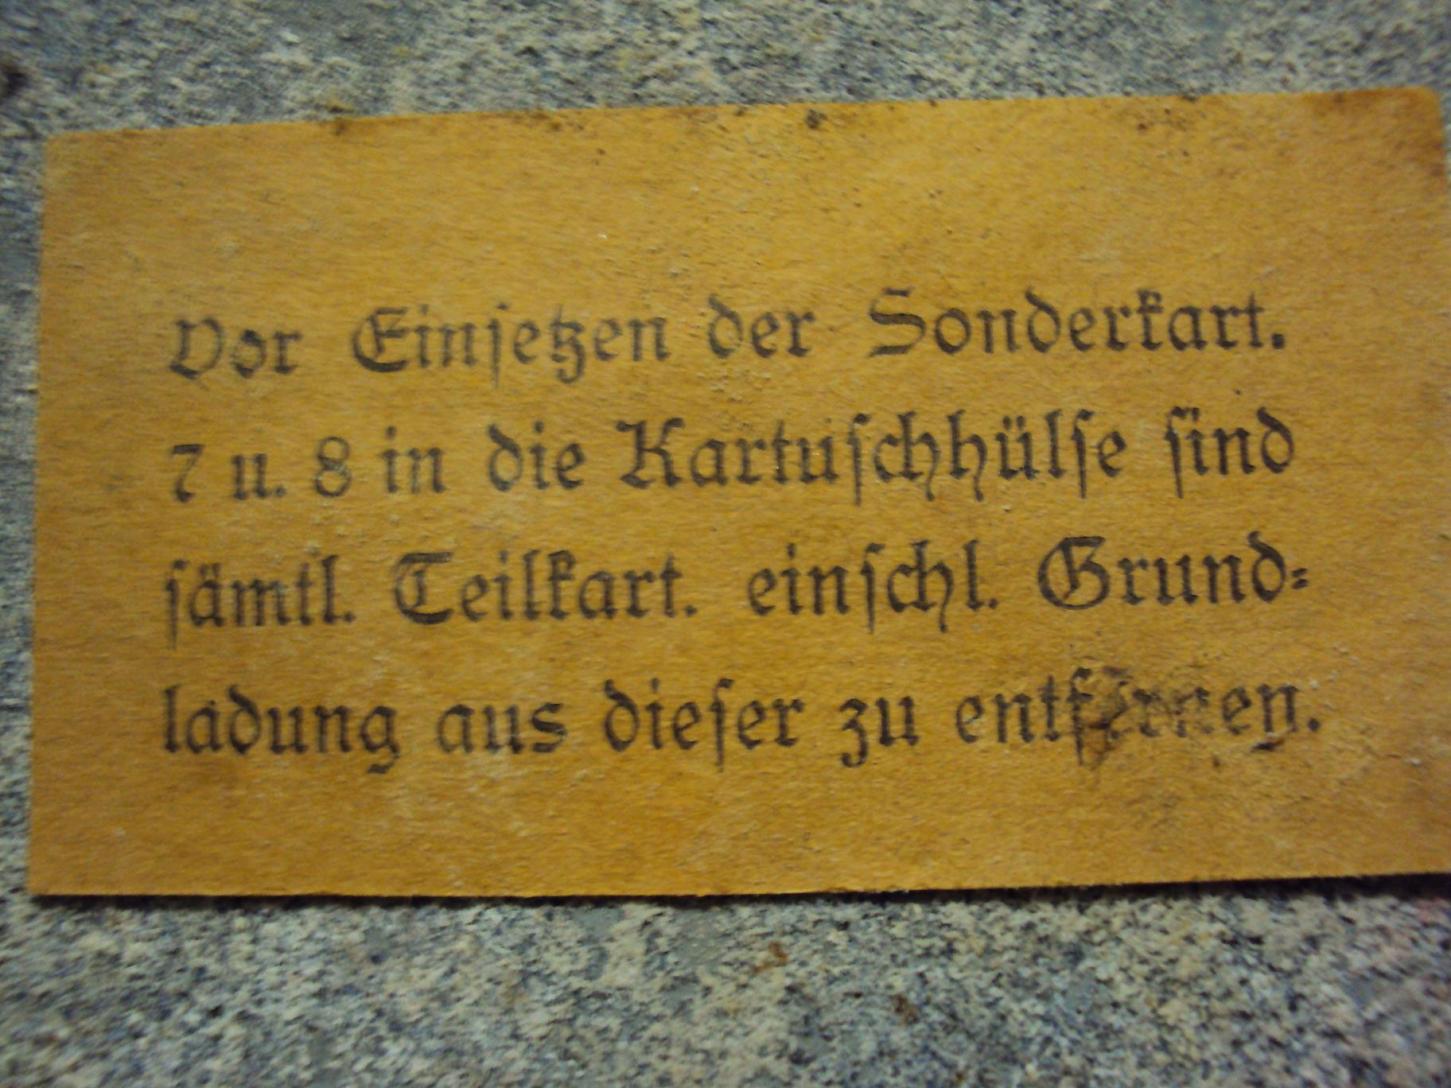 Vor Einſetzen der Sonderkart.
7 u. 8 in die Kartuſchhülſe ſind
ſämtl. Teilkart. einſchl. Grund⸗
ladung aus dieſer zu entfernen.